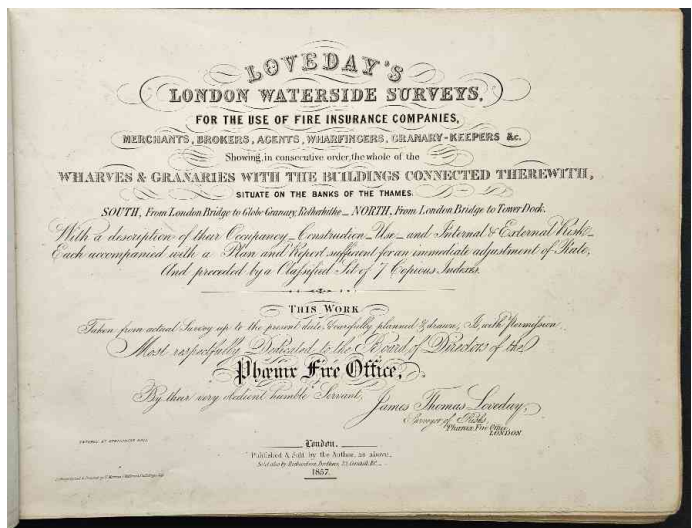 LOVEDAY'S
LONDON WATERSIDE SURVEYS,
FOR THE USE OF FIRE INSURANCE COMPANIES,
MERCHANTS, BROKERS, AGENTS, WHARFINGERS, GRANARY-KEEPERS &c.
Showing, in consecutive order, the whole of the
WHARVES & GRANARIES WITH THE BUILDINGS CONNECTED THEREWITH,
SITUATE ON THE BANKS OF THE THAMES.
SOUTH, From London Bridge to Globe Granary, Rotherhithe _ NORTH, From London Bridge to Tower Dock.
With a description of their Occupancy _ Construction _ Use _ and Internal & External Risk _
Each accompanied with a Plan and Report sufficient for an immediate adjustment of Rate,
And preceded by a Classified Set of 7 Copious Indexes.
THIS WORK
Taken from actual Survey up to the present date, Carefully planned & drawn, Is, with permission
Most respectfully Dedicated to the Board of Directors of the
Phœnix Fire Office,
By their very obedient humble Servant,
James Thomas Loveday,
Surveyor of Risks,
Phœnix Fire Office,
LONDON
ENTERED AT STATIONERS HALL
London,
Published & Sold by the Author, as above,
Sold also by Richardson, Brothers, 23, Cornhill, E.C.
1857.